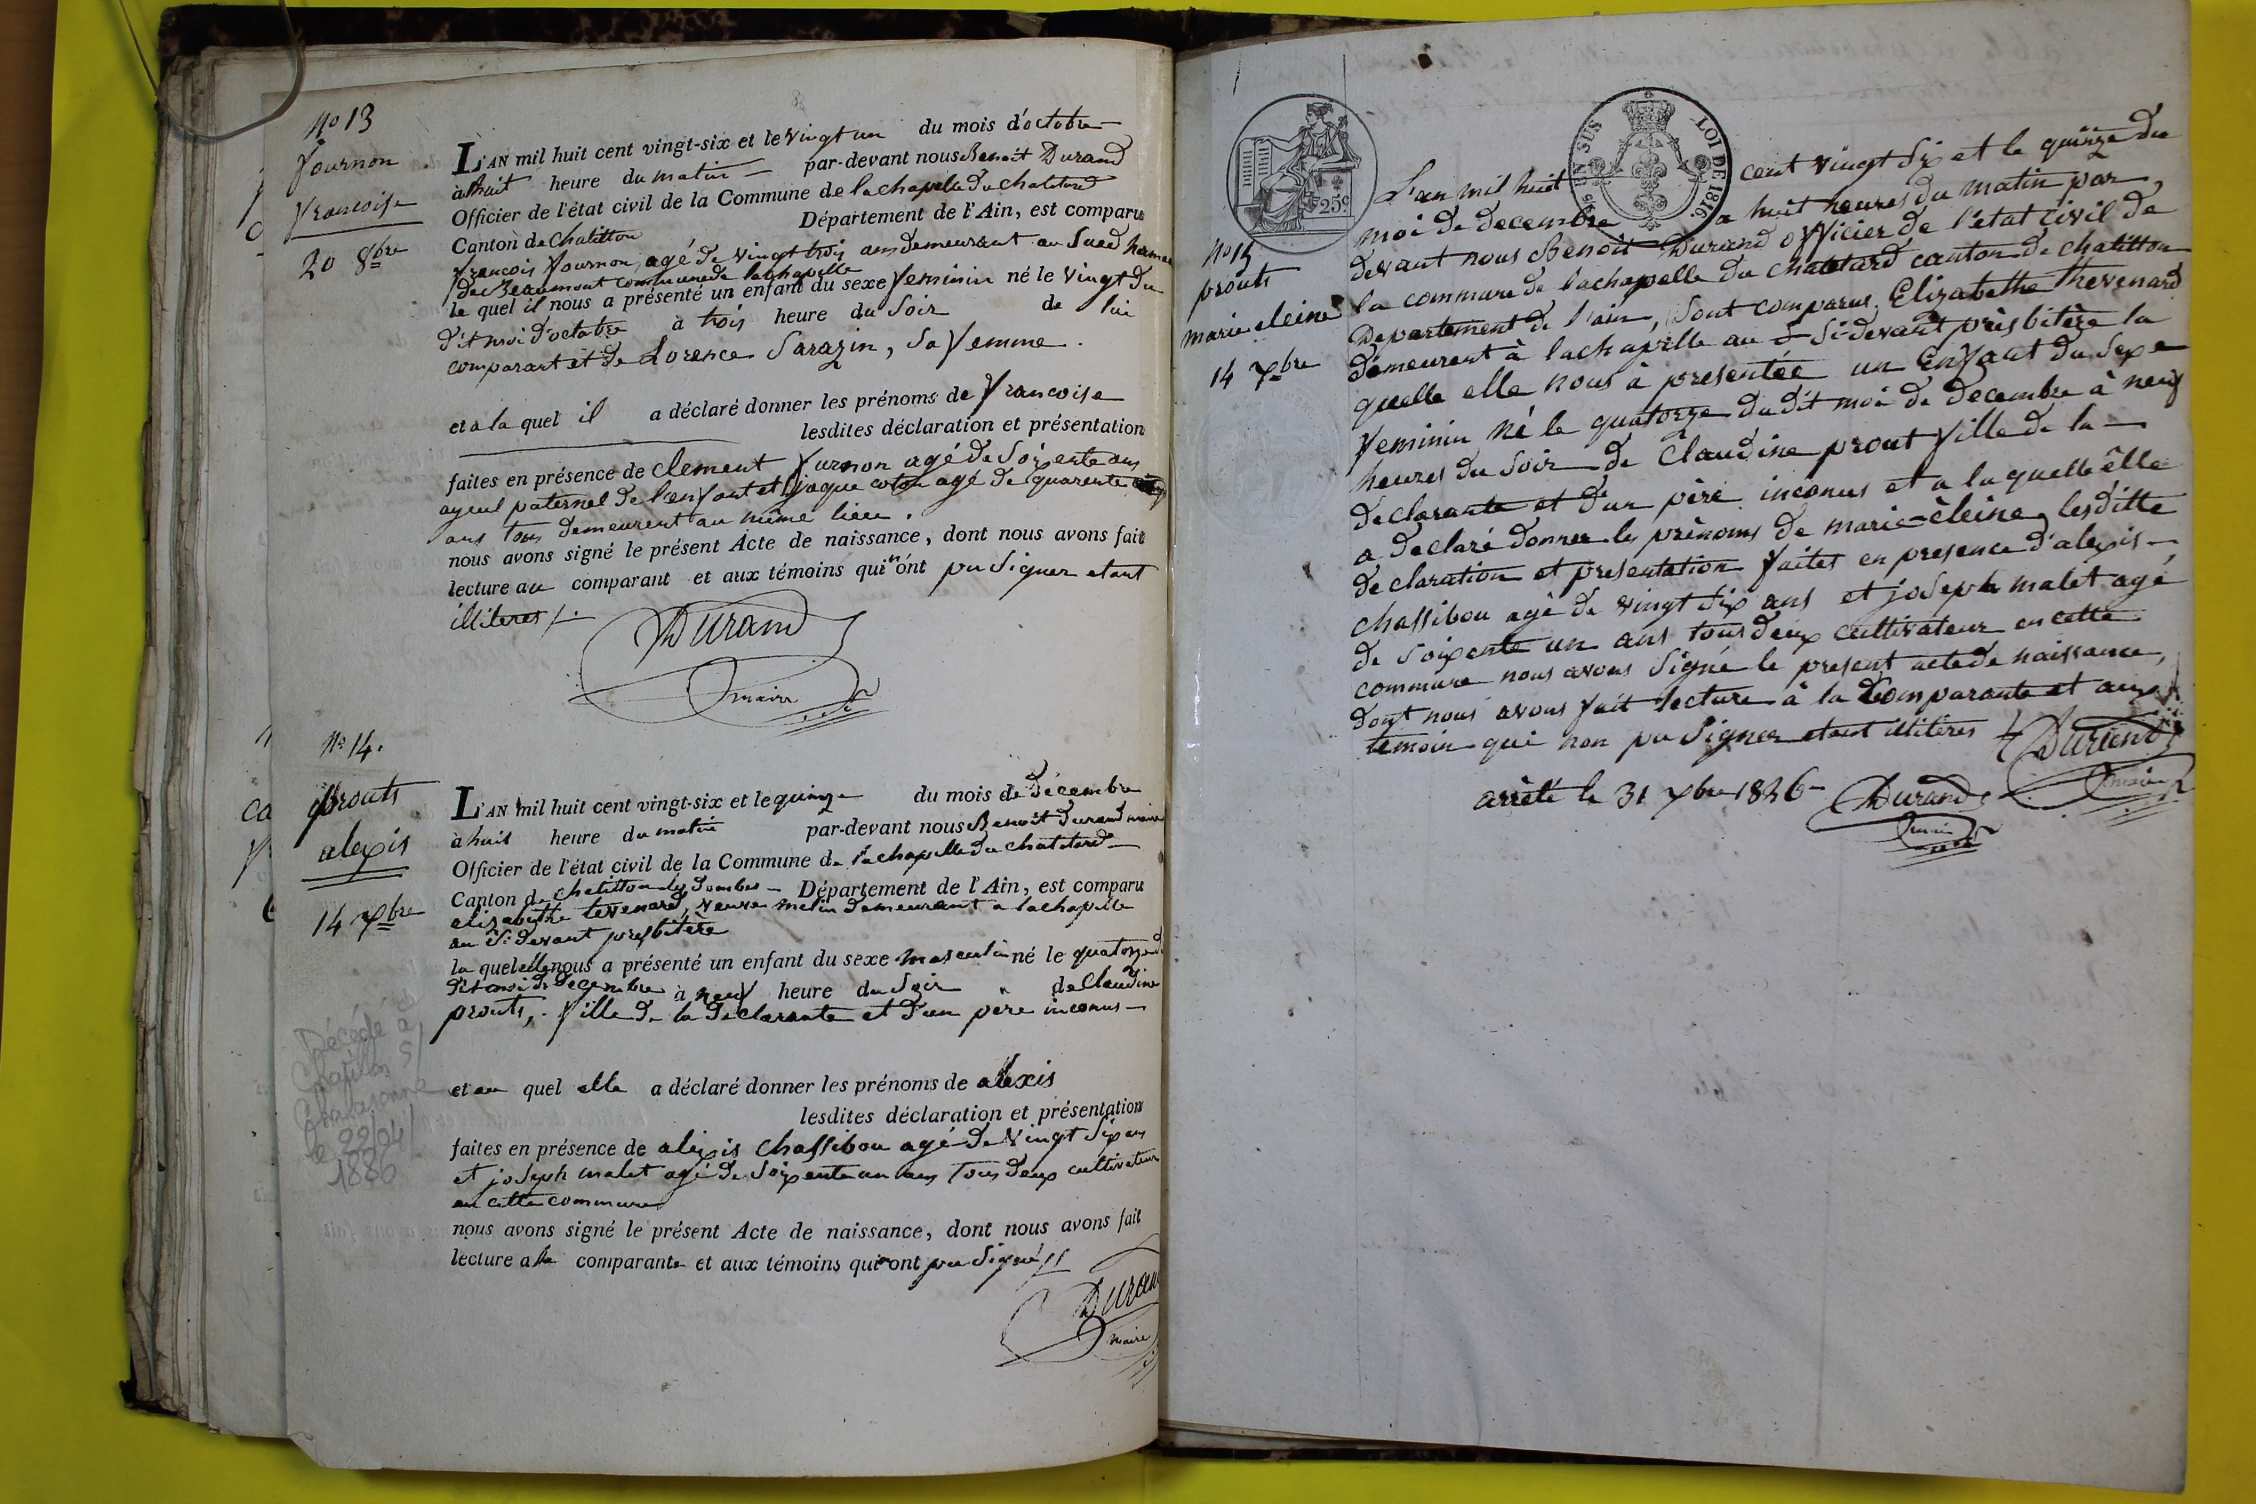 N° 13
fournon
francoise
20 8bre
L'AN mil huit cent vingt-six et le vingt un du mois d'octobre
à huit heure du matin par-devant nous Benoit Durand
Officier de l'état civil de la Commune de lachapelle du chatelard
Canton de Chatillon Département de l'Ain, est comparu
francois fournon, agé de vingt trois ans demeurant au hamau
de Beaumont commune de lachapelle
le quel il nous a présenté un enfant du sexe feminin né le vingt du
dit moi d'octobre à trois heure du soir de lui
comparant et de Lorence Sarazin, sa femme.
et a la quel il a déclaré donner les prénoms de francoise
lesdites déclaration et présentation
faites en présence de clement furnon agé de soixente ans
ayeul paternel de l'enfant et jaque coton agé de quarente
ans tous demeurent au même lieu.
nous avons signé le présent Acte de naissance, dont nous avons fait
lecture au comparant et aux témoins qui n'ónt pu signer etant
illiteres /.
Durand
maire
N° 14.
prouts
alexis
14 xbre
L'AN mil huit cent vingt-six et le quinze du mois de Décembre
à huit heure du matin par-devant nous Benoit Durand maire
Officier de l'état civil de la Commune de lachapelle du chatelard
Canton de chatillon les Dombes Département de l'Ain, est comparu
elizabethe tevenard, veuve melin demeurant a lachapelle
au si devant presbitère
la quel elle nous a présenté un enfant du sexe masculin né le quatorze du
dit moi de Decembre à neuf heure du soir de Claudine
prouts, fille de la declarante et d'un père inconus
et au quel elle a déclaré donner les prénoms de alexis
lesdites déclaration et présentation
faites en présence de alexis chassibou agé de vingt six ans
et joseph malet agé de soixente un ans tous deux cultivateur
en cette commune
nous avons signé le présent Acte de naissance, dont nous avons fait
lecture a la comparante et aux témoins qui n'ont pu signé //
Durand
maire
Décédé à
Chatillon s/
Chalaronne
le 22/04/
1886
N° 15
prouts
marie eleine
14 xbre
25c
EN SUS
LOI DE 1816.
L'an mil huit cent vingt six et le quinze du
moi de decembre a huit heures du matin par
devant nous Benoit Durand officier de l'état civil de
la commune de lachapelle du chatelard canton de chatillon
Departement de l'ain, sont comparue Elizabethe thevenard
demeurent à lachapelle au si-devant prèsbitère la
quelle elle nous à presentée un Enfant du sexe
feminin né le quatorze du dit moi de decembre à neuf
heures du soir de Claudine prout fille de la
declarante et d'un père inconus et a la quelle èlle
a declaré donner les prènoms de marie èleine, lesditte
declaration et presentation faites en presence d'alexis
chassibou agé de vingt six ans et joseph malet agé
de soixente un ans tous deux cultivateur en cette
commune nous avons signé le present acte de naissance,
dont nous avons fait lecture à la comparante et aux
temoin qui non pu signer etant illitères
Durand
maire
arrêté le 31 xbre 1826
Durand
maire